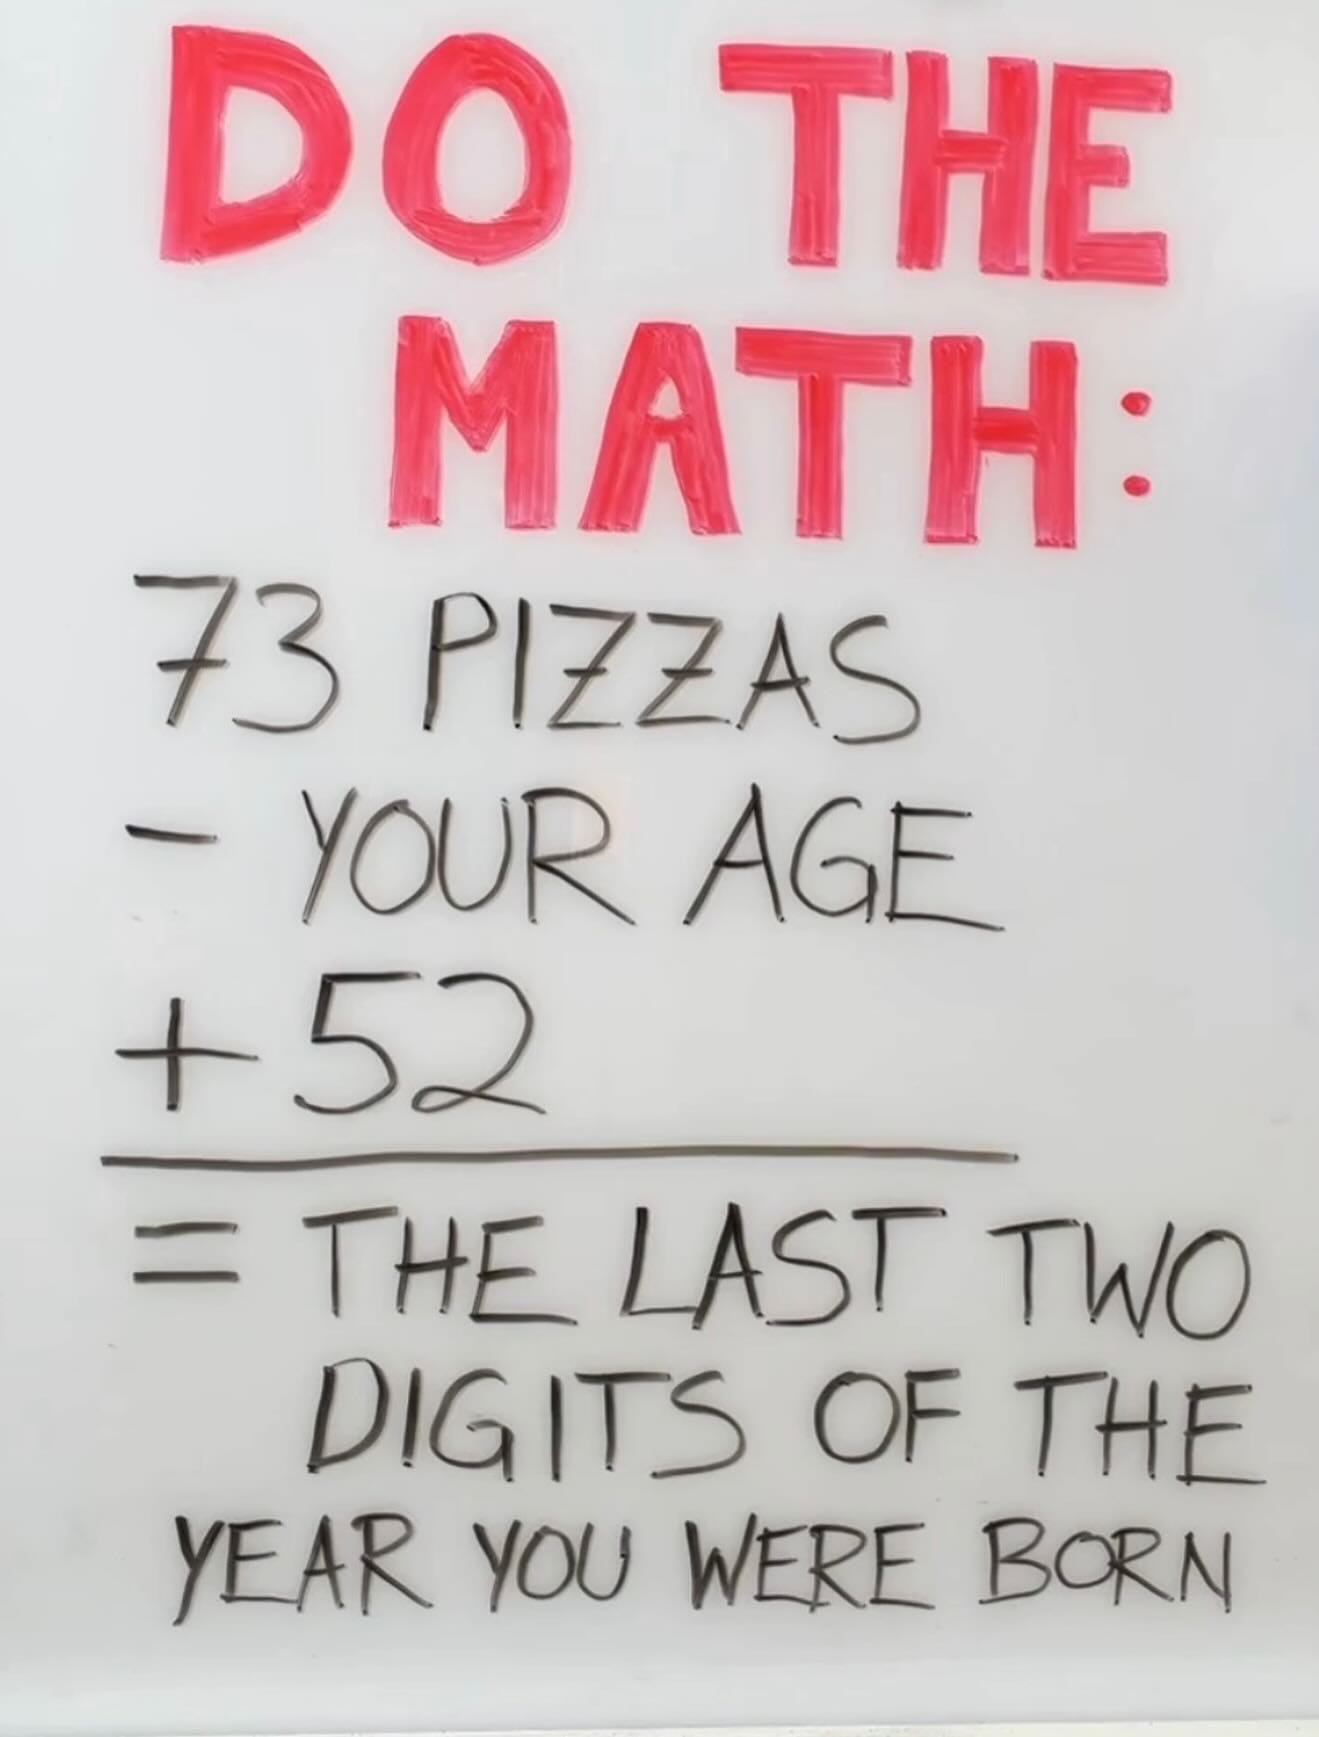 DO THE
MATH:
73 PIZZAS
- YOUR AGE
+ 52
= THE LAST TWO
DIGITS OF THE
YEAR YOU WERE BORN